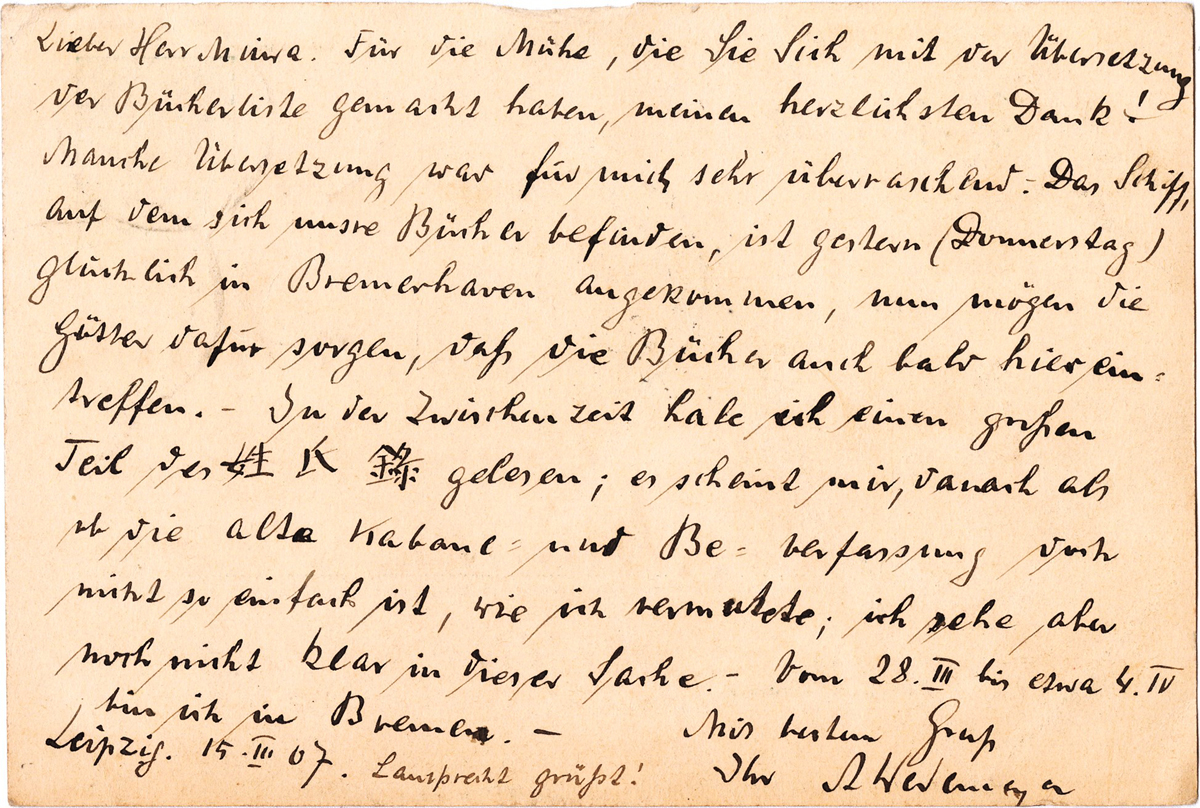 Lieber Herr Miura. Für die Mühe, die Sie Sich mit der Übersetzung
der Bücherliste gemacht haben, meinen herzlichsten Dank!
Manche Übersetzung war für mich sehr überraschend. - Das Schiff,
auf dem sich unsre Bücher befinden, ist gestern (Donnerstag)
glücklich in Bremerhaven angekommen, nun mögen die
Götter dafür sorgen, daß die Bücher auch bald hier ein-
treffen. - In der Zwischenzeit habe ich einen großen
Teil des 姓氏錄 gelesen; es scheint mir, danach als
ob die alte Kabane- und Be- verfassung doch
nicht so einfach ist, wie ich vermutete; ich sehe aber
noch nicht klar in dieser Sache. - Vom 28. III bis etwa 4. IV
bin ich in Bremen. - Mit bestem Gruß
Leipzig. 15. III 07. Lamprecht grüßt! Ihr A Wedemeyer